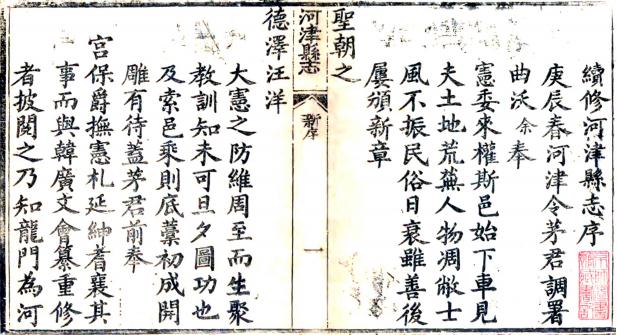 續修河津縣志序
庚辰春河津令茅君調署
曲沃余奉
憲委來權斯邑始下車見
夫土地荒蕪人物凋敝士
風不振民俗日衰雖善後
屢頒新章
聖朝之
河津縣志
新序
一
德澤汪洋
大憲之防維周至而生聚
教訓知未可旦夕圖功也
及索邑乘則底藁初成開
雕有待蓋茅君前奉
宫保爵撫憲札延紳耆襄其
事而與韓廣文會纂重修
者披閱之乃知龍門為河